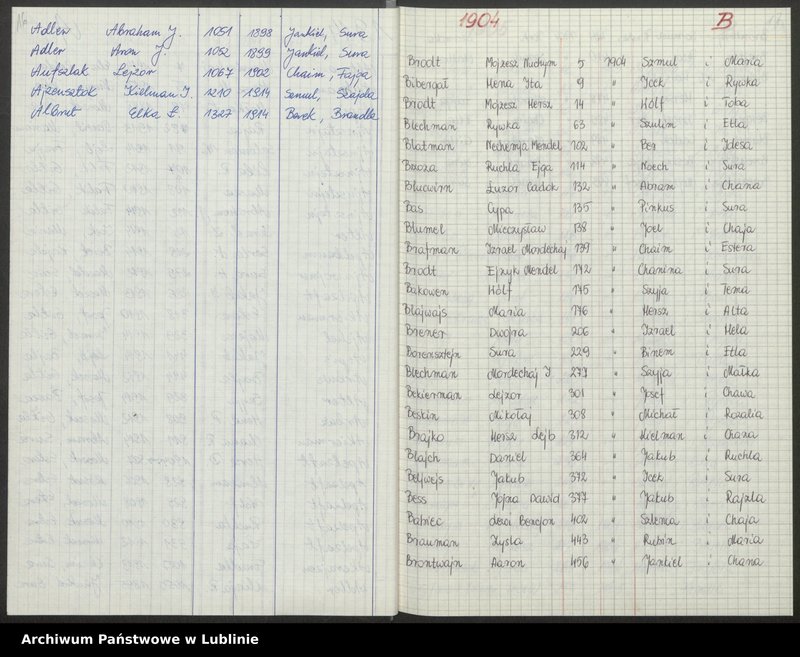 Adler Abraham J. 1051 1898 Jankiel, Sura
Adler Aron J. 1052 1899 Jankiel, Sura
Aufszlak Lejzor 1067 1902 Chaim, Fajga
Ajzensztok Kielman J. 1210 1914 Szajdla
Elka Ł. 1327 1914 Berek, Brandla
1904 B
Brodt Mojżesz Nuchym 5 1904 Szmul i Maria
Bibergał Hena Ita 9 " Icek i Rywka
Brodt Mojżesz Hersz 14 " Wolf i Toba
Blechman Rywka 63 " Szulim i Etla
Blatman Nechemja Mendel 102 " Ber i Idesa
Brzoza Ruchla Ejga 114 " Noech i Sura
Łuzor Cadok 132 " Abram i Chana
Bas Cypa 135 " Pinkus i Sura
Blumel Mieczysław 138 " Joel i Chaja
Brafman Izrael Mordechaj 139 " Chaim i Estera
Brodt Ejzyk Mendel 142 " Chanina i Sura
Bakowen Wolf 145 " Szyja i Tema
Blajwajs Maria 146 " Hersz i Alta
Brener Dwojra 206 " Izrael i Hela
Borensztejn Sura 229 " Binem i Etla
Blechman Mordechaj J 277 " Szyja i Małka
Bekierman Lejzor 301 " Josef i Chawa
Beskin Mikołaj 308 " Michał i Rozalia
Brajko Hersz Lejb 312 " Kielman i Chaza
Blajch Daniel 364 " Jakub i Ruchla
Jakub 372 " Icek i Sura
Bess Dawid 377 " Jakub i Rajzla
Lewi Benejon 402 " Szlema i Chaja
Brauman Zysla 443 " Rubin i Maria
Brontwajn Aaron 456 " Jankiel i Chana
Archiwum Państwowe w Lublinie